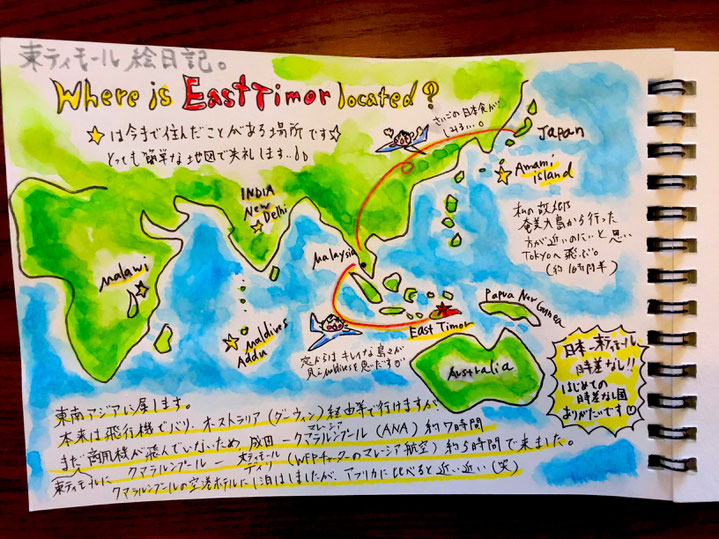 東ティモール絵日記。
Where is East Timor located?
☆は今まで住んだことがある場所です☆
とっても簡単な地図で失礼します..
さいごの日本食が
しみる...。
Japan
Amami
island
私の故郷
奄美大島から行った
方が近いのに、と思い
Tokyoへ飛ぶ。
INDIA
New
Delhi
Malaysia
Malawi
Maldives
Addu
Papua New Guinea
East Timor
Australia
空からは キレイな島々が
見え Maldivesを思い出す
日本-東ティモール
時差なし!!
はじめての
時差なし国
ありがたいです
東南アジアに属します。
本来は飛行機でバリ、オーストラリア(ダーウィン)経由等で行けますが、
まだ商用機が飛んでいないため、成田-クアラルンプール(ANA)約7時間
マレーシア
東ティモールに クアラルンプール - ディリ(WFPチャーターのマレーシア航空)約5時間で来ました。
東ティモール
クアラルンプールの空港ホテルに1泊はしましたが、アフリカに比べると近い近い(笑)